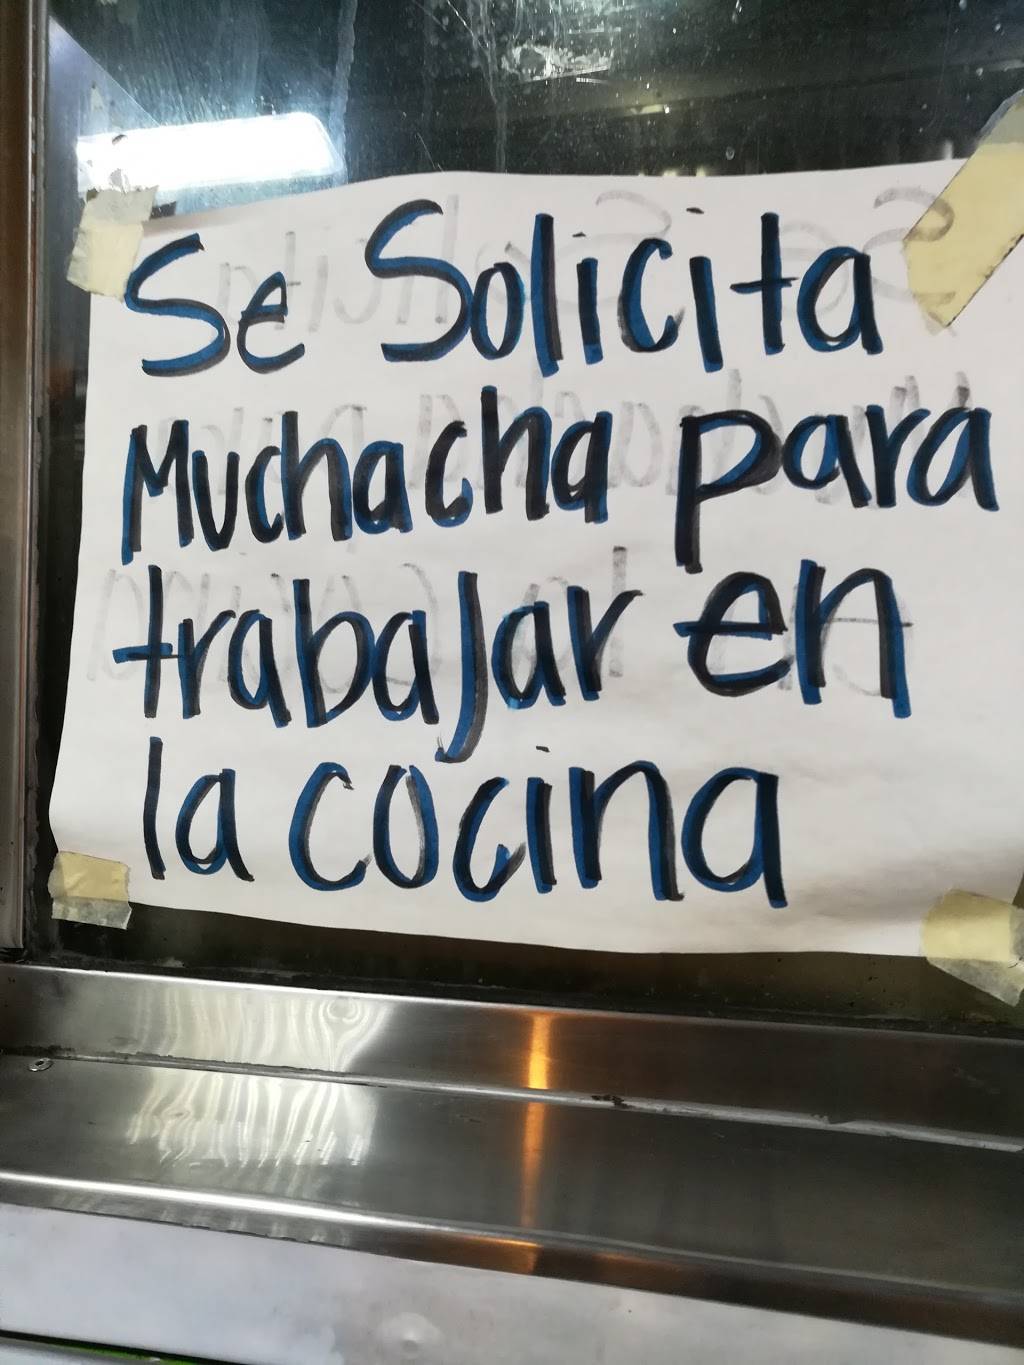 Se Solicita
Muchacha para
trabajar en
la cocina